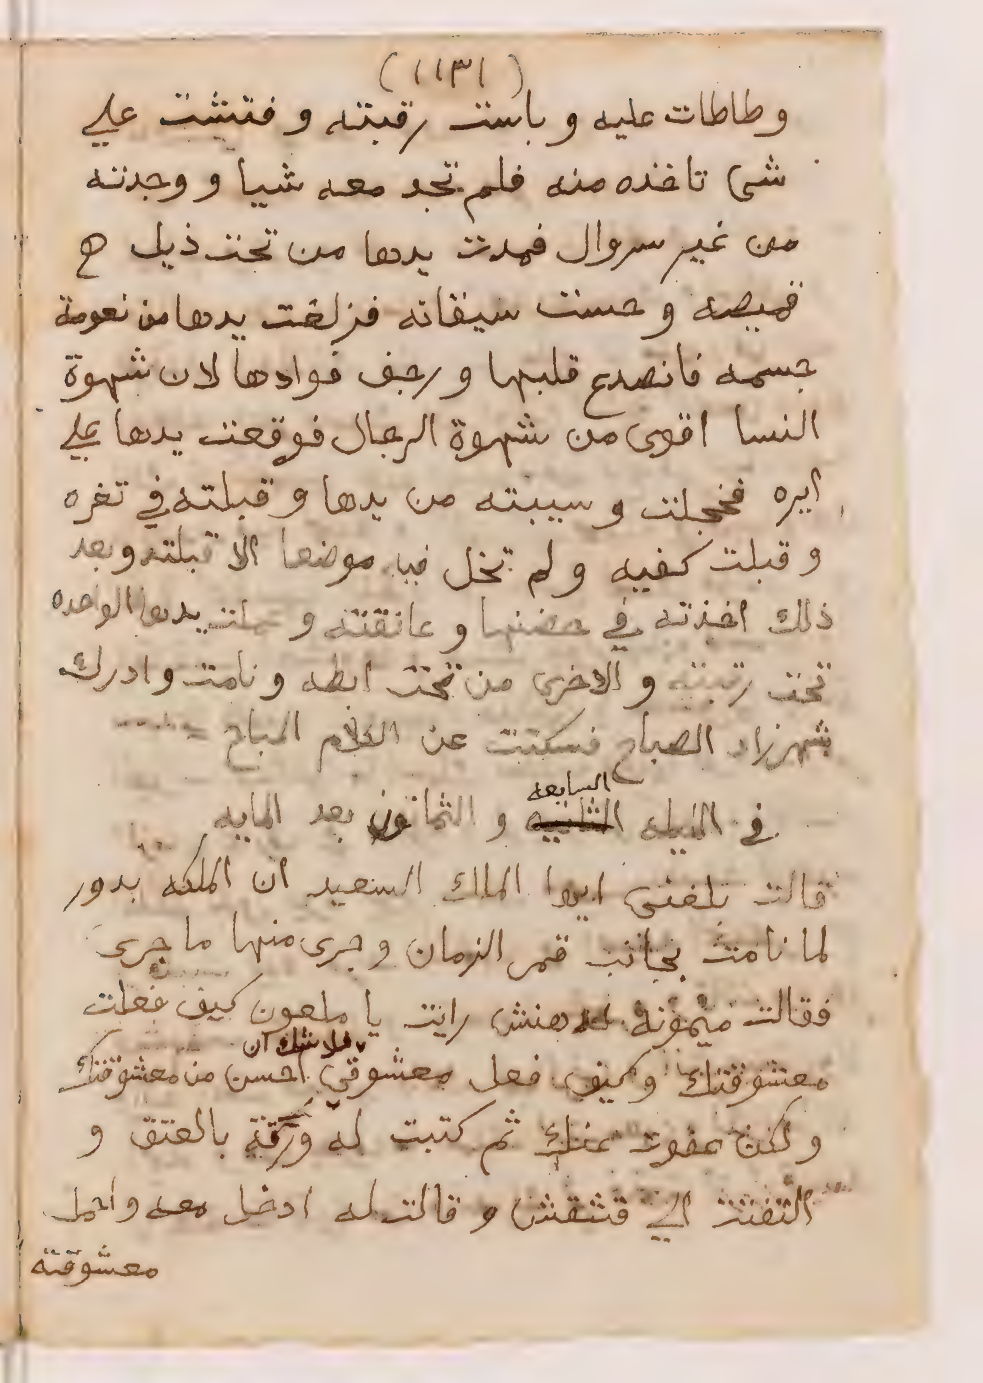 (١١٣١)
وطاطات عليه و باست رقبته و فتشت علي
شي تاخذه منه فلم تجد معه شيا و وجدته
من غير سروال فمدت يدها من تحت ذيل
قميصه و حست سيقانه فزلخت يدها من نعومة
جسمه فانصدع قلبها و رجف فوادها لان شهوة
النسا اقوي من شهوة الرجال فوقعت يدها علي
ايره فخجلت و سيبته من يدها و قبلته في تغره
و قبلت كفيه و لم تخل فيه موضعا الا قبلته وبعد
ذلك اخذته في حضنها و عانقته و عملت يدها الواحده
تحت رقبته و الاخري من تحت ابطه و نامت و ادرك
شهرزاد الصباح فسكتت عن الكلام المباح
في الليله الثانيه السابعه و الثمانون بعد المايه
قالت بلغني ايها الملك السعيد ان الملكه بدور
لما نامت بجانب قمر الزمان و جري منها ما جري
فقالت ميمونه لدهنش رايت يا ملعون كيف فعلت
معشوقتك وكيف فعل معشوقي فلا شك ان احسن من معشوقتك
و لكن عفوت عنك ثم كتبت له ورقة بالعتق و
التفتت الي قشقش و قالت له ادخل معه واحمل
معشوقته